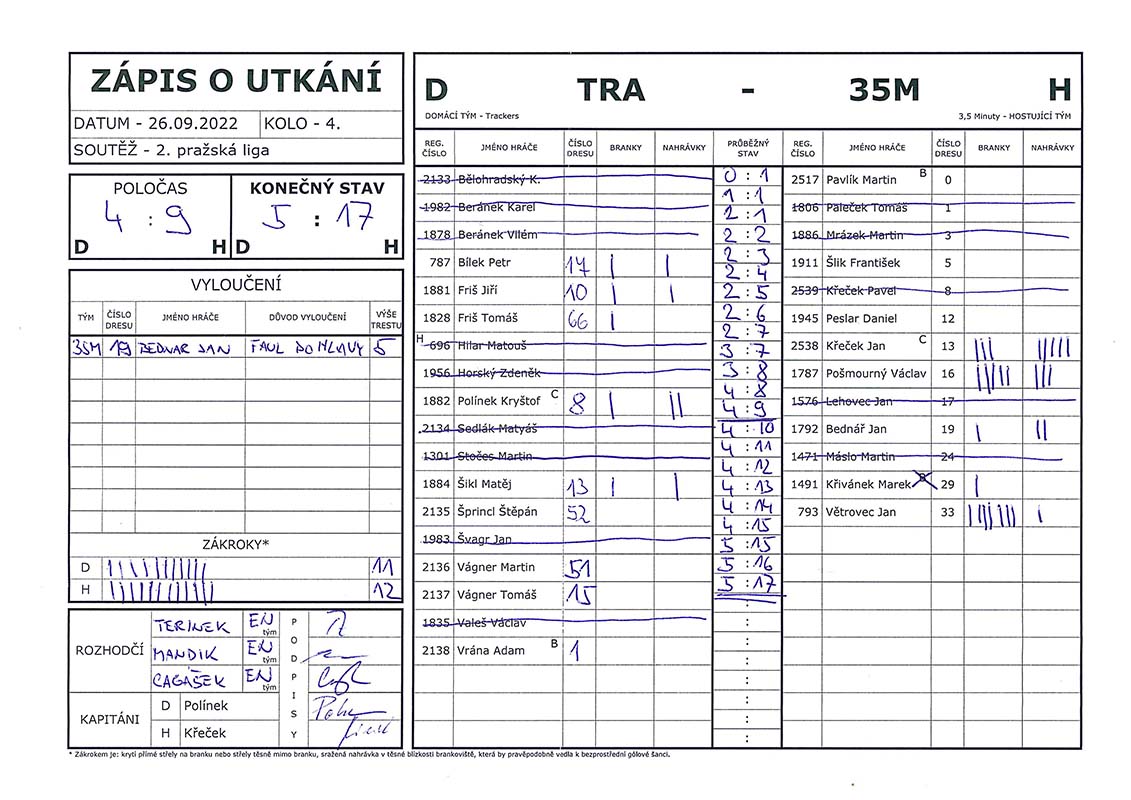 ZÁPIS O UTKÁNÍ
DATUM - 26.09.2022 KOLO - 4.
SOUTĚŽ - 2. pražská liga
POLOČAS KONEČNÝ STAV
4 : 9 5 : 17
D H D H
VYLOUČENÍ
TÝM ČÍSLO DRESU JMÉNO HRÁČE DŮVOD VYLOUČENÍ VÝŠE TRESTU
35M 19 BEDNAR JAN FAUL DO HLAVY 5
ZÁKROKY*
D 11
H 12
ROZHODČÍ
TERINEK EN tým
MANDIK EN tým
CAGAŠEK EN tým
PODPISY
KAPITÁNI
D Polínek
H Křeček
D TRA - 35M H
DOMÁCÍ TÝM - Trackers 3,5 Minuty - HOSTUJÍCÍ TÝM
REG. ČÍSLO JMÉNO HRÁČE ČÍSLO DRESU BRANKY NAHRÁVKY PRŮBĚŽNÝ STAV REG. ČÍSLO JMÉNO HRÁČE ČÍSLO DRESU BRANKY NAHRÁVKY
2133 Bělohradský K.
1982 Beránek Karel
1878 Beránek Vilém
787 Bílek Petr 17 | |
1881 Friš Jiří 10 | |
1828 Friš Tomáš 66 |
H 696 Hilar Matouš
1956 Horský Zdeněk
1882 Polínek Kryštof C 8 | ||
2134 Sedlák Matyáš
1301 Stočes Martin
1884 Šikl Matěj 13 | |
2135 Šprincl Štěpán 52
1983 Švagr Jan
2136 Vágner Martin 51
2137 Vágner Tomáš 15
1835 Valeš Václav
2138 Vrána Adam B 1
0 : 1
1 : 1
2 : 1
2 : 2
2 : 3
2 : 4
2 : 5
2 : 6
2 : 7
3 : 7
3 : 8
4 : 8
4 : 9
4 : 10
4 : 11
4 : 12
4 : 13
4 : 14
4 : 15
5 : 15
5 : 16
5 : 17
:
:
:
:
:
:
:
:
2517 Pavlík Martin B 0
1806 Paleček Tomáš 1
1886 Mrázek Martin 3
1911 Šlik František 5
2539 Křeček Pavel 8
1945 Peslar Daniel 12
2538 Křeček Jan C 13 ||| |||||
1787 Pošmourný Václav 16 ||||| |||
1576 Lehovec Jan 17
1792 Bednář Jan 19 | ||
1471 Máslo Martin 24
1491 Křivánek Marek 29 |
793 Větrovec Jan 33 ||||||| |
* Zákrokem je: krytí přímé střely na branku nebo střely těsně mimo branku, sražená nahrávka v těsné blízkosti brankoviště, která by pravěpodobně vedla k bezprostřední gólové šanci.